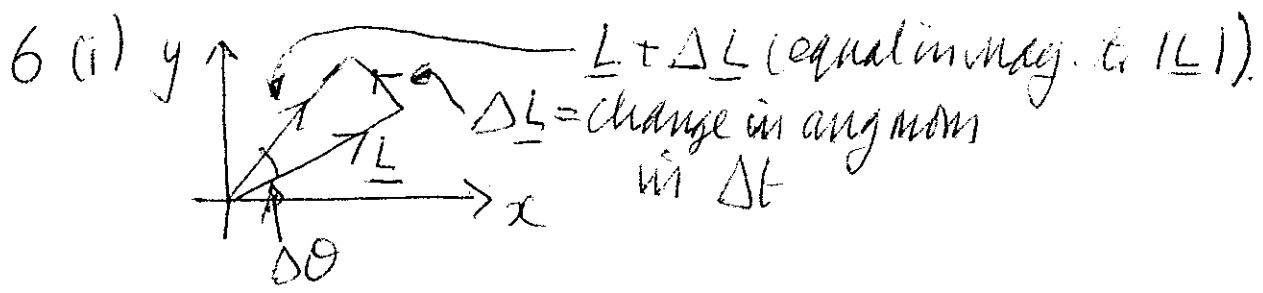 6 (i) y L + ΔL (equal in mag. to |L|).
ΔL = change in ang mom
in Δt
L
x
Δθ